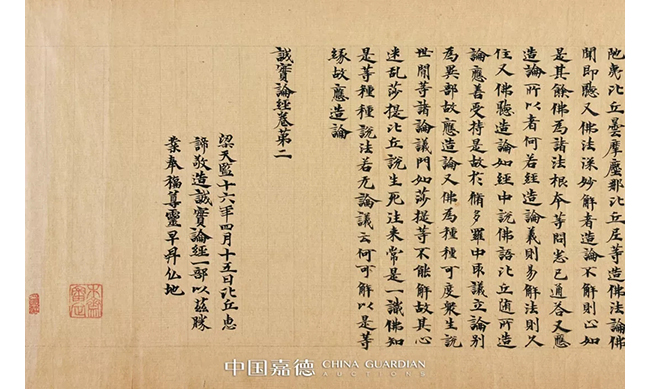 陁夷比丘曇摩塵那比丘尼等造佛法論佛
聞即聽又佛法深妙解者造論不解則止如
是其餘佛為諸法根本等問悉已通荅又應
造論所以者何若經造論義則易解法則久
住又佛聽造論如經中說佛語比丘随所造
論應善受持是故於脩多羅中取議立論别
為異部故應造論又佛為種種可度衆生說
世間等諸論議門如莎提等不能解故其心
迷乱莎提比丘說生死往来常是一識佛如
是等種種說法若无論議云何可解以是等
緣故應造論
誠實論經卷第二
梁天監十六年四月十五日比丘惠
諦敬造誠實論經一部以茲勝
業奉福尊靈早昇仏地
中国嘉德 CHINA GUARDIAN
AUCTIONS